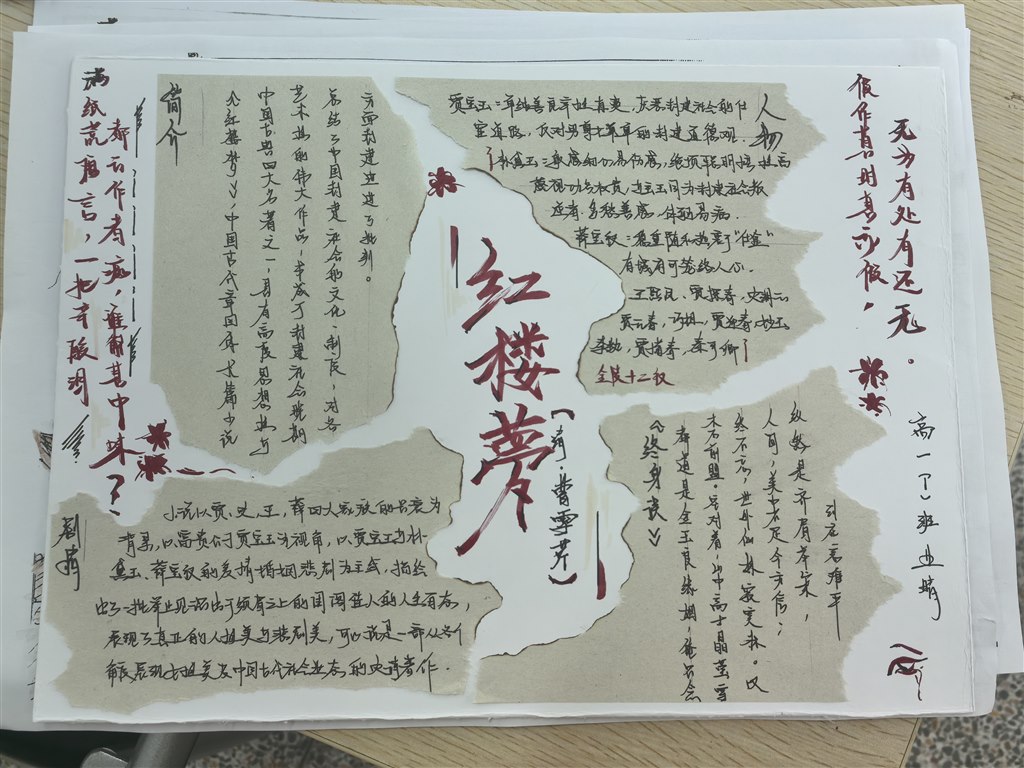 红楼梦
【清·曹雪芹】
假作真时真亦假，
无为有处有还无。
满纸荒唐言，一把辛酸泪
都云作者痴，谁解其中味？
简介
《红楼梦》，中国古代章回体长篇小说
中国古典四大名著之一，具有高度思想性与
艺术性的伟大作品，
总结了中国封建社会的文化、制度，对各
方面封建进行了批判。
人物
贾宝玉：
宝道路，反对男尊女卑的封建道德观。
林黛玉：敏感细心易伤感，
逆者，多愁善感，体弱易病。
薛宝钗：稳重随和
有城府可笼络人心。
王熙凤、贾探春、史湘云
贾元春，巧姐，贾迎春，妙玉
李纨，贾惜春，秦可卿
金陵十二钗
剧情
小说以贾、史、王、薛四大家族的兴衰为
背景，以富贵公子贾宝玉为视角，以贾宝玉与林
黛玉、薛宝钗的爱情婚姻悲剧为主线，描绘
出了一批举止见识出于须眉之上的闺阁佳人的人生百态，
展现了真正的人性美与悲剧美，可以说是一部从各个
角度展现女性美及中国古代社会百态的史诗著作.
《终身误》
都道是金玉良缘姻，俺只念
木石前盟。空对着，山中高士晶莹雪
终不忘，世外仙姝寂寞林。叹
人间，美中不足今方信；
纵然是齐眉举案，
到底意难平
高一(1)班